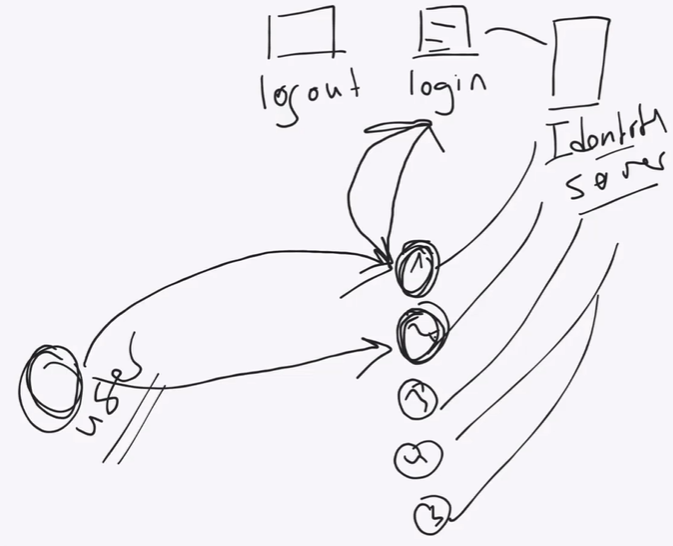 logout
login
Identity
Server
1
2
user